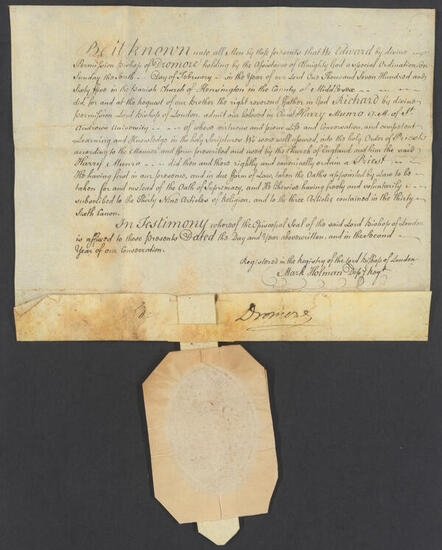 Be it known unto all Men by these presents that We Edward by divine
Permission Bishop of Dromore holding by the Assistance of Almighty God a special Ordination on
Sunday the tenth Day of February in the Year of our Lord One Thousand Seven Hundred and
Sixty five in the Parish Church of Kensington in the County of Middlesex
did, for and at the request of our brother the right reverend ffather in God Richard by divine
permission Lord Bishop of London, admit our beloved in Christ Harry Munro A.M. of St.
Andrews University of whose virtuous and pious Life and Conversation, and competent
Learning and Knowledge in the holy Scriptures We were well assured, into the holy Order of Priests
according to the Manner and fform prescribed and used by the Church of England, and him the said
Harry Munro did then and there rightly and canonically ordain a Priest
He having first in our presence, and in due form of Law, taken the Oaths appointed by Law to be
taken for and instead of the Oath of Supremacy, and He likewise having freely and voluntarily
subscribed to the Thirty Nine Articles of Religion, and to the three Articles contained in the Thirty
Sixth Canon.
In Testimony whereof the Episcopal Seal of the said Lord Bishop of London
is affixed to these presents Dated the Day and Year abovewritten, and in the Second
Year of our Consecration.
Registered in the registry of the Lord Bishop of London
Mark Holman Depy. Regr.
Dromore